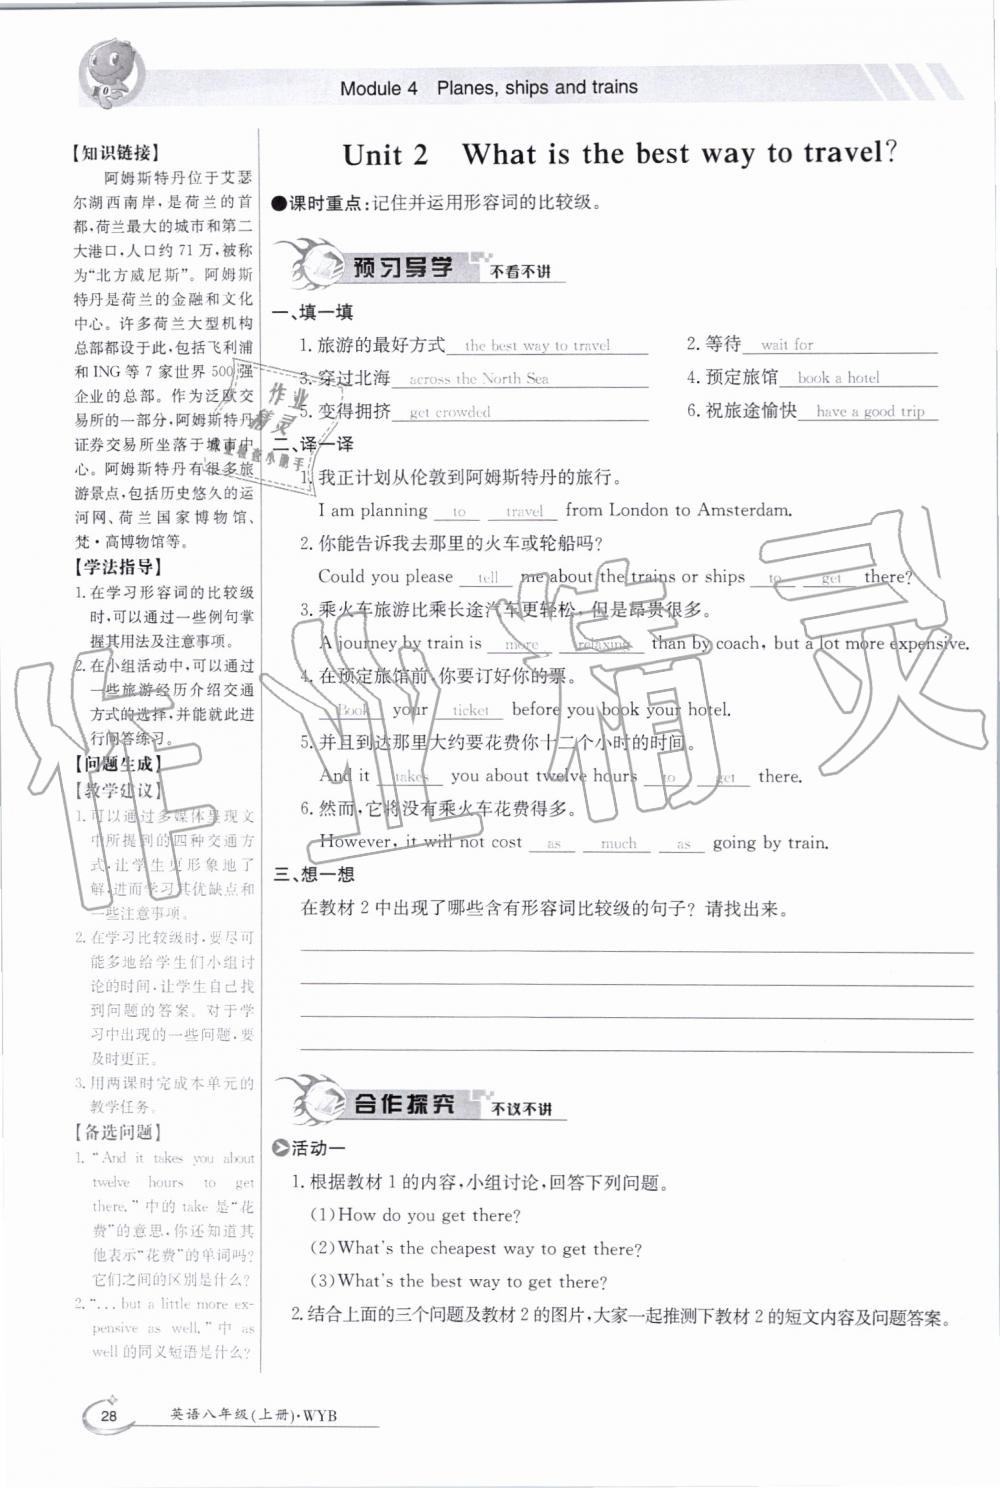 Module 4 Planes, ships and trains
【知识链接】
阿姆斯特丹位于艾瑟
尔湖西南岸,是荷兰的首
都,荷兰最大的城市和第二
大港口,人口约 71 万,被称
为“北方威尼斯”。阿姆斯
特丹是荷兰的金融和文化
中心。许多荷兰大型机构
总部都设于此,包括飞利浦
和 ING 等 7 家世界 500 强
企业的总部。作为泛欧交
易所的一部分,阿姆斯特丹
证券交易所坐落于城市中
心。阿姆斯特丹有很多旅
游景点,包括历史悠久的运
河网、荷兰国家博物馆、
梵·高博物馆等。
【学法指导】
1. 在学习形容词的比较级
时,可以通过一些例句掌
握其用法及注意事项。
2. 在小组活动中,可以通过
一些旅游经历介绍交通
方式的选择,并能就此进
行问答练习。
【问题生成】
【教学建议】
1. 可以通过多媒体呈现文
中所提到的四种交通方
式,让学生更形象地了
解,进而学习其优缺点和
一些注意事项。
2. 在学习比较级时,要尽可
能多地给学生们小组讨
论的时间,让学生自己找
到问题的答案。对于学
习中出现的一些问题,要
及时更正。
3. 用两课时完成本单元的
教学任务。
【备选问题】
1. “And it takes you about
twelve hours to get
there.”中的 take 是“花
费”的意思,你还知道其
他表示“花费”的单词吗?
它们之间的区别是什么?
2. “...but a little more ex-
pensive as well.”中 as
well 的同义短语是什么?
Unit 2 What is the best way to travel?
●课时重点:记住并运用形容词的比较级。
预习导学 不看不讲
一、填一填
1. 旅游的最好方式 the best way to travel 2. 等待 wait for
3. 穿过北海 across the North Sea 4. 预定旅馆 book a hotel
5. 变得拥挤 get crowded 6. 祝旅途愉快 have a good trip
二、译一译
1. 我正计划从伦敦到阿姆斯特丹的旅行。
I am planning to travel from London to Amsterdam.
2. 你能告诉我去那里的火车或轮船吗?
Could you please tell me about the trains or ships to get there?
3. 乘火车旅游比乘长途汽车更轻松,但是昂贵很多。
A journey by train is more relaxing than by coach, but a lot more expensive.
4. 在预定旅馆前,你要订好你的票。
Book your ticket before you book your hotel.
5. 并且到达那里大约要花费你十二个小时的时间。
And it takes you about twelve hours to get there.
6. 然而,它将没有乘火车花费得多。
However, it will not cost as much as going by train.
三、想一想
在教材 2 中出现了哪些含有形容词比较级的句子? 请找出来。
合作探究 不议不讲
活动一
1. 根据教材 1 的内容,小组讨论,回答下列问题。
(1)How do you get there?
(2)What's the cheapest way to get there?
(3)What's the best way to get there?
2. 结合上面的三个问题及教材 2 的图片,大家一起推测下教材 2 的短文内容及问题答案。
28 英语八年级(上册)·WYB
作业精灵
作业
精灵
作业检查小助手